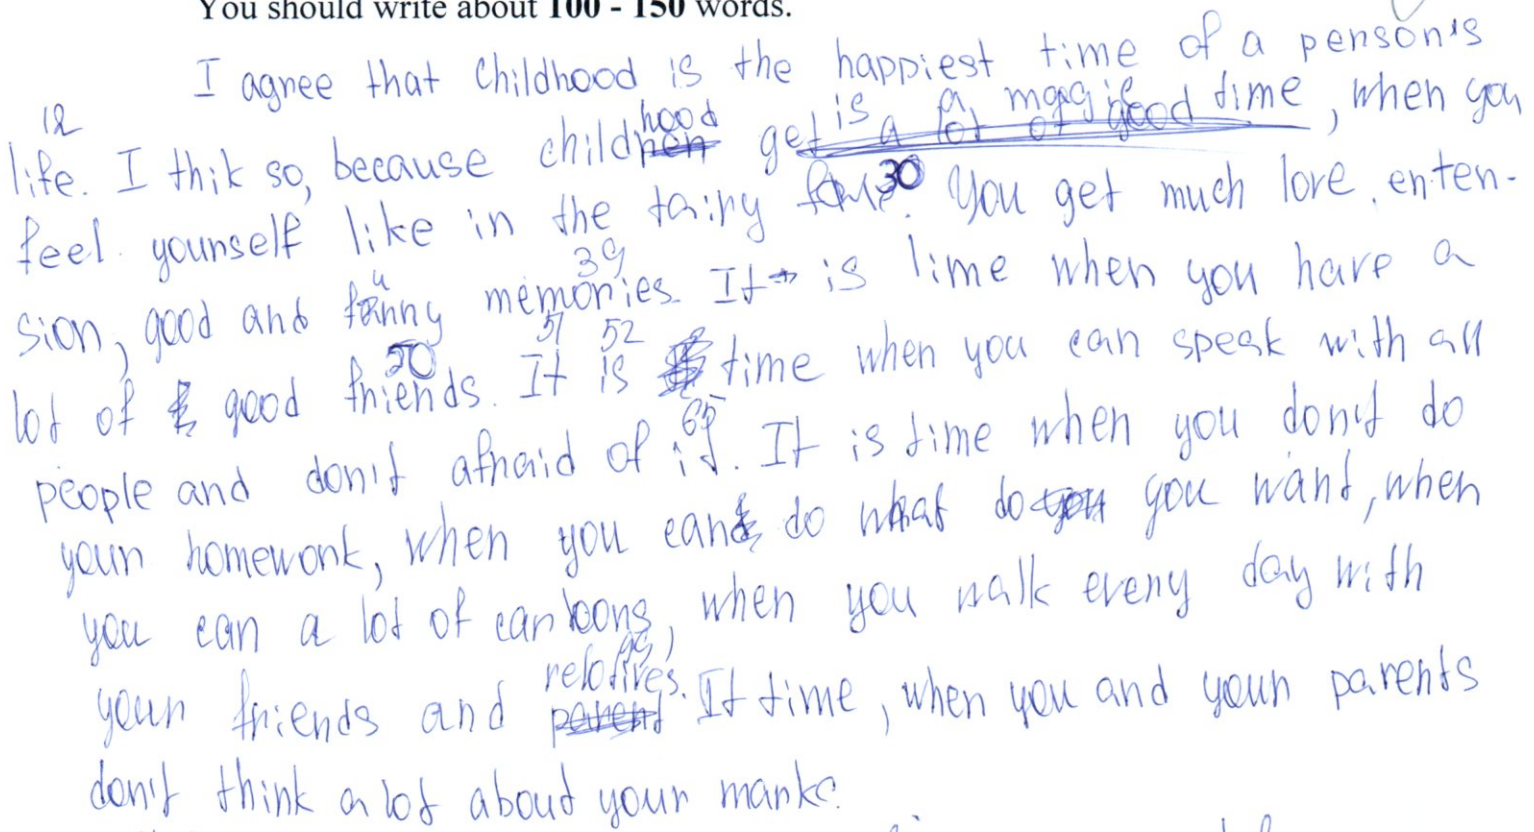 You should write about 100 - 150 words.
I agree that childhood is the happiest time of a person's
12
life. I thik so, because childhood is a magic time, when you
feel yourself like in the fairy 30 You get much love, enten-
sion, good and funny memories. It is time when you have a
39
lot of good friends. It is time when you can speak with all
50 51 52
people and don't afraid of it. It is time when you don't do
65
your homework, when you can do what do you want, when
you can a lot of cartoons, when you walk every day with
your friends and relatives. It time, when you and your parents
don't think a lot about your marks.